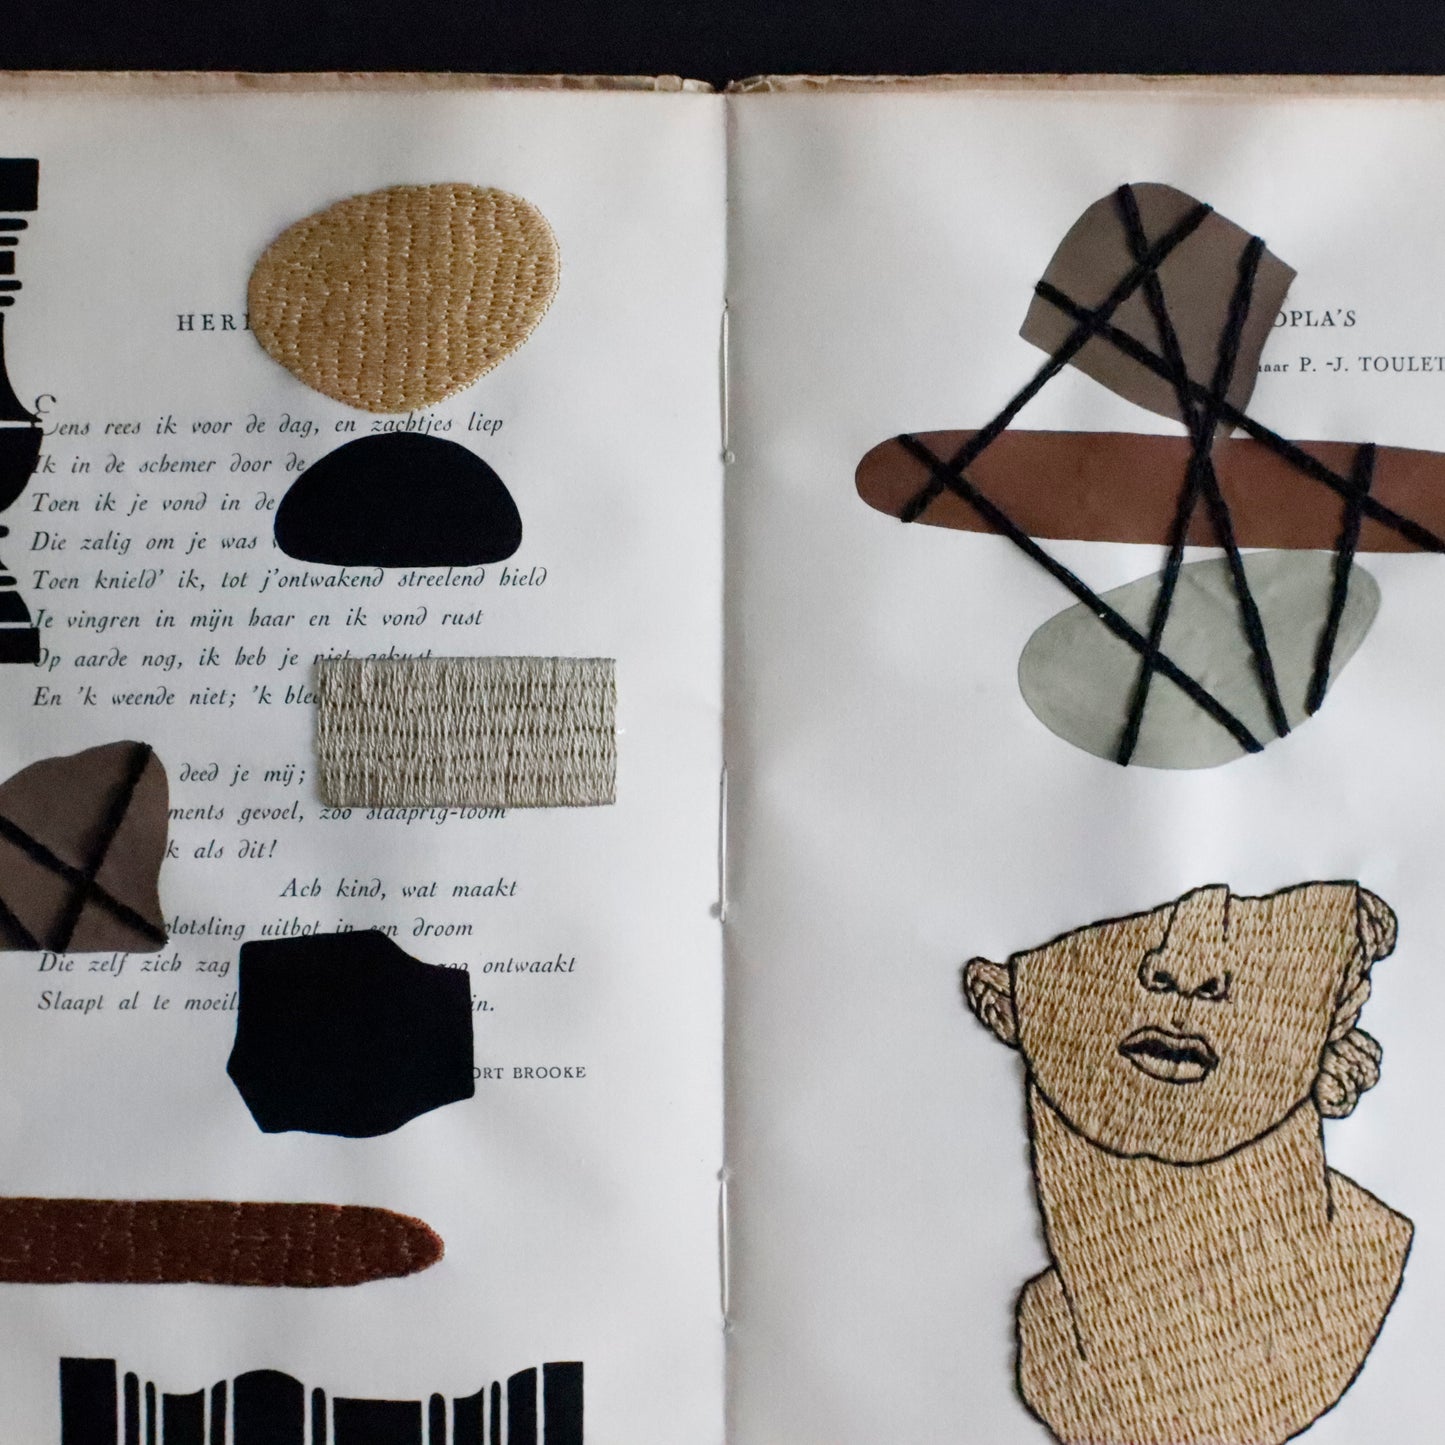 Eens rees ik voor de dag, en zachtjes liep
Ik in de schemer door de
Toen ik je vond in de
Die zalig om je was
Toen knield' ik, tot j'ontwakend streelend hield
Je vingren in mijn haar en ik vond rust
Op aarde nog, ik heb je niet gekust
En 'k weende niet; 'k
deed je mij;
gevoel, zoo slaaprig-loom
als dit!
Ach kind, wat maakt
plotsling uitbot in een droom
Die zelf zich zag zoo ontwaakt
Slaapt al te
BROOKE
OPLA'S
naar P. -J. TOULET